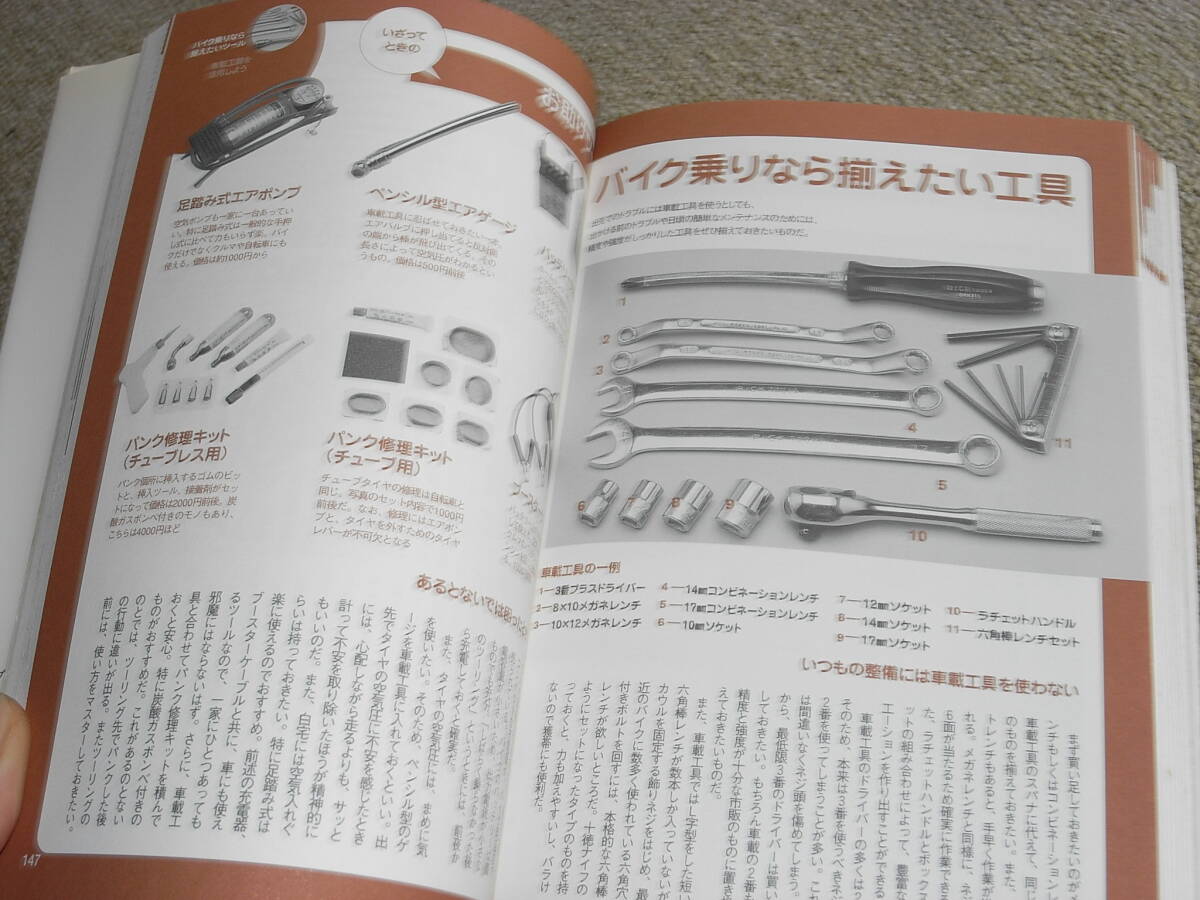 バイク乗りなら揃えたい工具
出先でのトラブルには車載工具を使うとしても、
出かける前のトラブルや日頃の簡単なメンテナンスのためには、
精度や強度がしっかりした工具をぜひ揃えておきたいものだ。
1
2
3
4
5
6
7
8
9
10
11
車載工具の一例
1—3番プラスドライバー
2—8×10メガネレンチ
3—10×12メガネレンチ
4—14㎜コンビネーションレンチ
5—17㎜コンビネーションレンチ
6—10㎜ソケット
7—12㎜ソケット
8—14㎜ソケット
9—17㎜ソケット
10—ラチェットハンドル
11—六角棒レンチセット
いつもの整備には車載工具を使わない
まず買い足しておきたいのが
ンチもしくはコンビネーション
車載工具のスパナに代えて、同じ
のものを揃えておきたい。また、
トレンチもあると、手早く作業が
れる。メガネレンチと同様に、ネジ
6面が当たるため確実に作業でき
た、ラチェットハンドルとボックス
ットの組み合わせによって、豊富な
エーションを作り出すことができる
車載工具のドライバーの多くは2
そのため、本来は3番を使うべきネジ
2番を使ってしまうことが多い。これ
は間違いなくネジ頭を傷めてしまう。
から、最低限3番のドライバーは買い
しておきたい。もちろん車載の2番も
精度と強度が十分な市販のものに置き
ておきたいものだ。
また、車載工具ではL字型をした短い
六角棒レンチが数本しか入っていないが
カウルを固定する飾りネジをはじめ、最
近のバイクに数多く使われている六角穴
付きボルトを回すには、本格的な六角棒
レンチが欲しいところだ。十徳ナイフの
ようにセットになったタイプのものを持
っておくと、力も加えやすいし、バラけ
ないので携帯にも便利だ。
バイク乗りなら
揃えたいツール
車載工具を
活用しよう
いざって
ときの
お助け
足踏み式エアポンプ
空気ポンプも一家に一台あってい
い。特に足踏み式は一般的な手押
し式に比べて力もいらず楽。バイ
クだけでなくクルマや自転車にも
使える。価格は約1000円から
ペンシル型エアゲージ
車載工具に忍ばせておきたい一本。
エアバルブに押し当てると反対側
の端から棒が飛び出てくる。その
長さによって空気圧がわかるとい
うもの。価格は500円前後
パンク修理キット
(チューブレス用)
パンク個所に挿入するゴムのピッ
トと、挿入ツール、接着剤がセッ
トになって価格は2000円前後。炭
酸ガスボンベ付きのモノもあり、
こちらは4000円ほど
パンク修理キット
(チューブ用)
チューブタイヤの修理は自転車と
同じ。写真のセット内容で1000円
前後だ。なお、修理にはエアポン
プと、タイヤを外すためのタイヤ
レバーが不可欠となる
ブースタ
あるとないでは
また、タイヤの空気圧には、まめに気
を使いたい。そのため、ペンシル型のゲ
ージを車載工具に入れておくといい。出
先でタイヤの空気圧に不安を感じたとき
には、心配しながら走るよりも、サッと
計って不安を取り除いたほうが精神的に
もいいのだ。また、自宅には空気入れぐ
らいは持っておきたい。特に足踏み式は
楽に使えるのでおすすめ。前述の充電器、
ブースターケーブルと共に、車にも使え
るツールなので、一家にひとつあっても
邪魔にはならないはず。さらに、車載工
具と合わせてパンク修理キットを積んで
おくと安心。特に炭酸ガスボンベ付きの
ものがおすすめだ。これがあるのとない
のとでは、ツーリング先でパンクした後
の行動に違いが出る。またツーリングの
前には、使い方をマスターしておきたい。
147